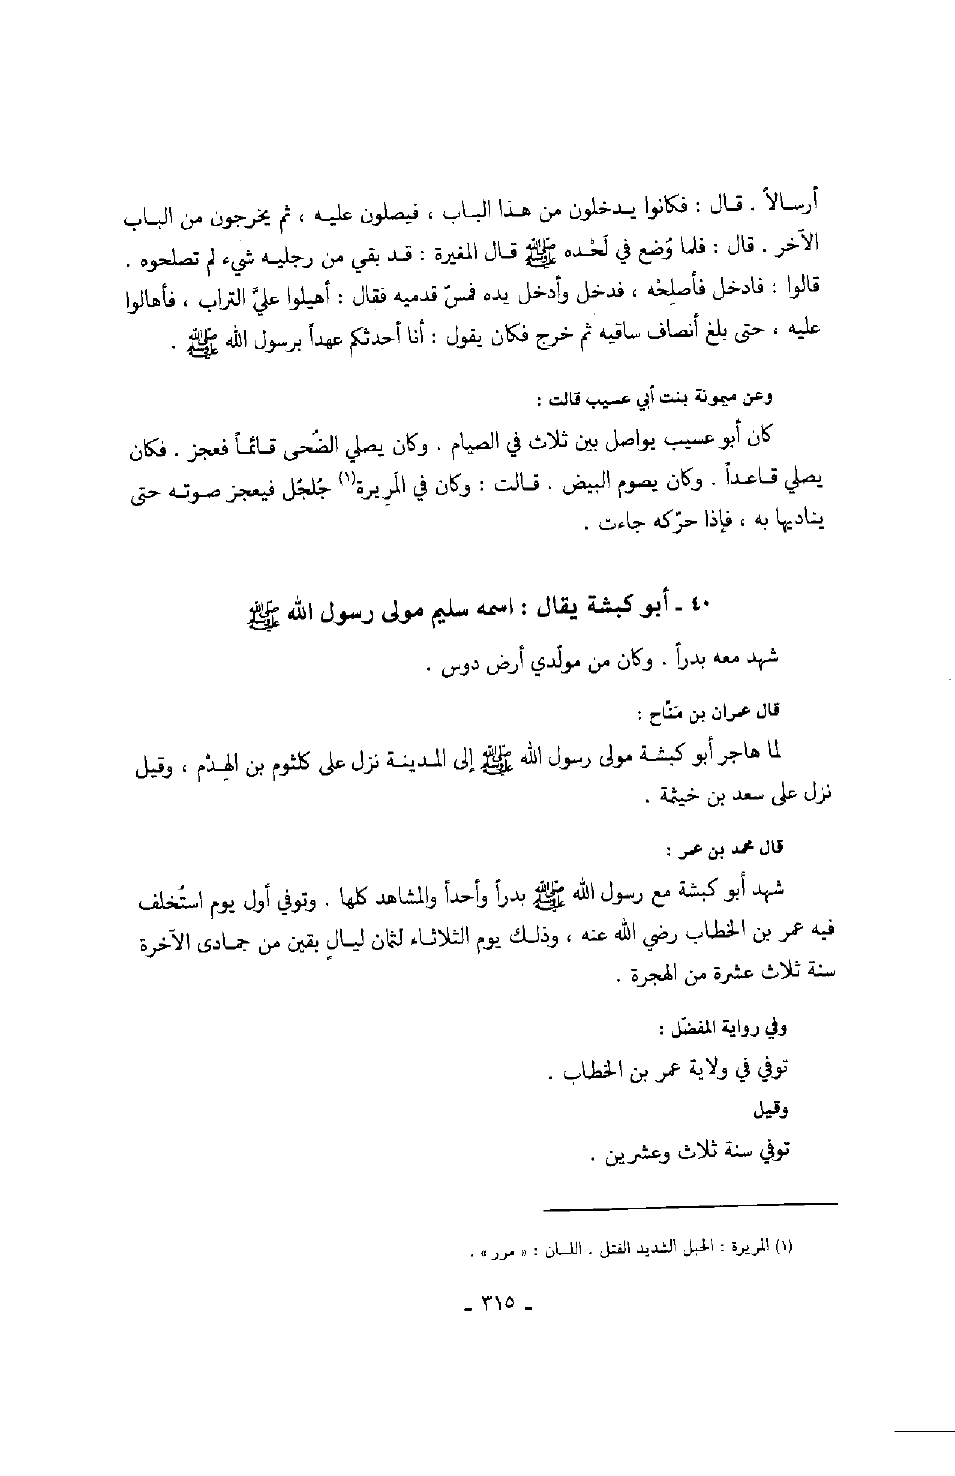 أرسالاً . قال : فكانوا يدخلون من هذا الباب ، فيصلون عليه ، ثم يخرجون من الباب
الآخر . قال : فلما وُضع في لَحْده ﷺ قال المغيرة : قد بقي من رجليه شيء لم تصلحوه .
قالوا : فادخل فأصلِحْه ، فدخل وأدخل يده فمسّ قدميه فقال : أهيلوا عليَّ التراب ، فأهالوا
عليه ، حتى بلغ أنصاف ساقيه ثم خرج فكان يقول : أنا أحدثكم عهداً برسول الله ﷺ .
وعن ميمونة بنت أبي عسيب قالت :
كان أبو عسيب يواصل بين ثلاث في الصيام . وكان يصلي الضُحى قائماً فعجز . فكان
يصلي قاعداً . وكان يصوم البيض . قالت : وكان في المَرِيرة(١) جُلجُل فيعجز صوته حتى
يناديها به ، فإذا حرّكه جاءت .
٤٠ ـ أبو كبشة يقال : اسمه سليم مولى رسول الله ﷺ
شهد معه بدراً . وكان من مولّدي أرض دوس .
قال عمران بن مَنّاح :
لما هاجر أبو كبشة مولى رسول الله ﷺ إلى المدينة نزل على كلثوم بن الهِدْم ، وقيل
نزل على سعد بن خيثمة .
قال محمد بن عمر :
شهد أبو كبشة مع رسول الله ﷺ بدراً وأحداً والمشاهد كلها . وتوفي أول يوم استُخلف
فيه عمر بن الخطاب رضي الله عنه ، وذلك يوم الثلاثاء لثمان ليالٍ بقين من جمادى الآخرة
سنة ثلاث عشرة من الهجرة .
وفي رواية المفضّل :
توفي في ولاية عمر بن الخطاب .
وقيل
توفي سنة ثلاث وعشرين .
(١) المريرة : الحبل الشديد الفتل . اللسان : « مرر » .
ـ ٣١٥ ـ